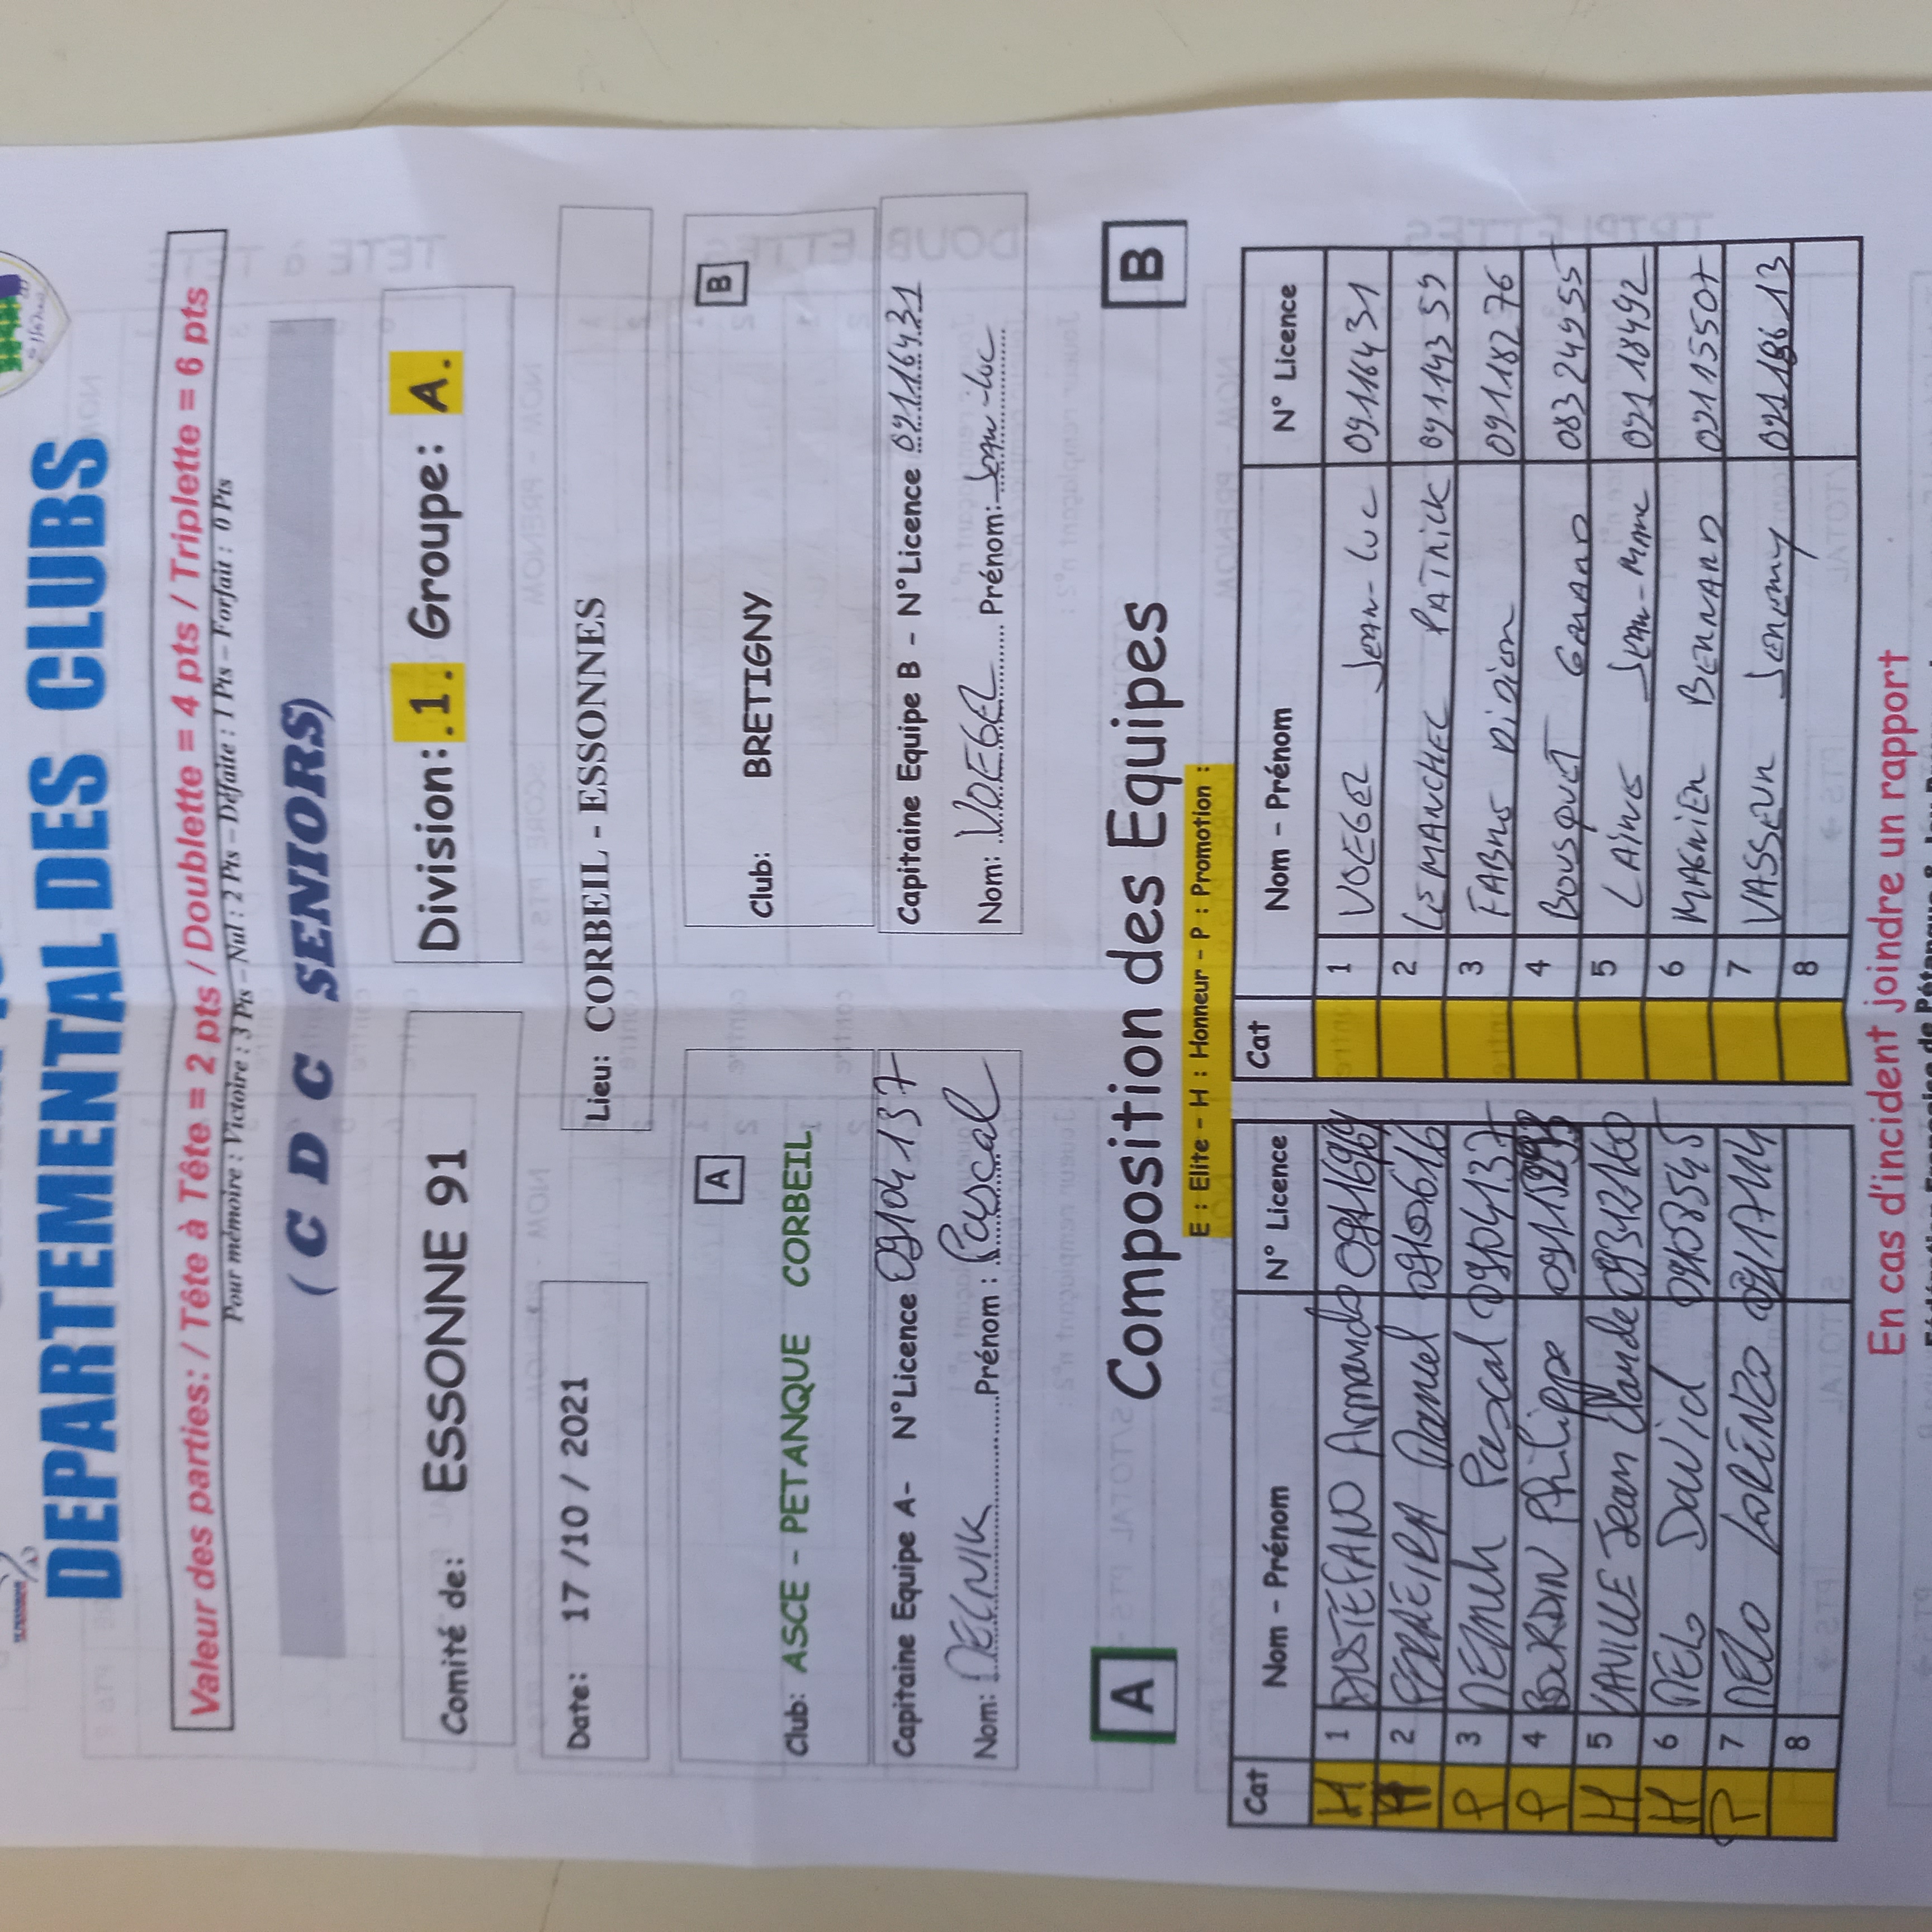 DEPARTEMENTAL DES CLUBS
Valeur des parties: / Tête à Tête = 2 pts / Doublette = 4 pts / Triplette = 6 pts
Pour mémoire : Victoire : 3 Pts – Nul : 2 Pts – Défaite : 1 Pts – Forfait : 0 Pts
( C D C SENIORS)
Comité de: ESSONNE 91
Division: .1. Groupe: A.
Date: 17 /10 / 2021
Lieu: CORBEIL - ESSONNES
A
Club: ASCE - PETANQUE CORBEIL
B
Club: BRETIGNY
Capitaine Equipe A- N°Licence 09104137
Nom: Prénom : Pascal
Capitaine Equipe B - N°Licence 09116431
Nom: VOEGEL Prénom: Jean-Luc
A Composition des Equipes B
E : Elite - H : Honneur - P : Promotion :
Cat Nom - Prénom N° Licence
H 1 DISTEFANO Armando
H 2 PERREIRA Manuel
P 3 Pascal 09104137
P 4 BURDIN Philippe
H 5 LAVILLE Jean Claude 09312160
H 6 MELO David 09108545
P 7 MELO LORENZO 09117114
8
Cat Nom - Prénom N° Licence
1 VOEGEL Jean-Luc 09116431
2 LEMANCHEC PATRICK 09114359
3 FABRE Didier 09118276
4 BOUSQUET GERARD 08324955
5 LAINE Jean-Marc 09118492
6 MAGNIEN BERNARD 09115507
7 VASSEUR Jeremy 09118613
8
En cas d'incident joindre un rapport